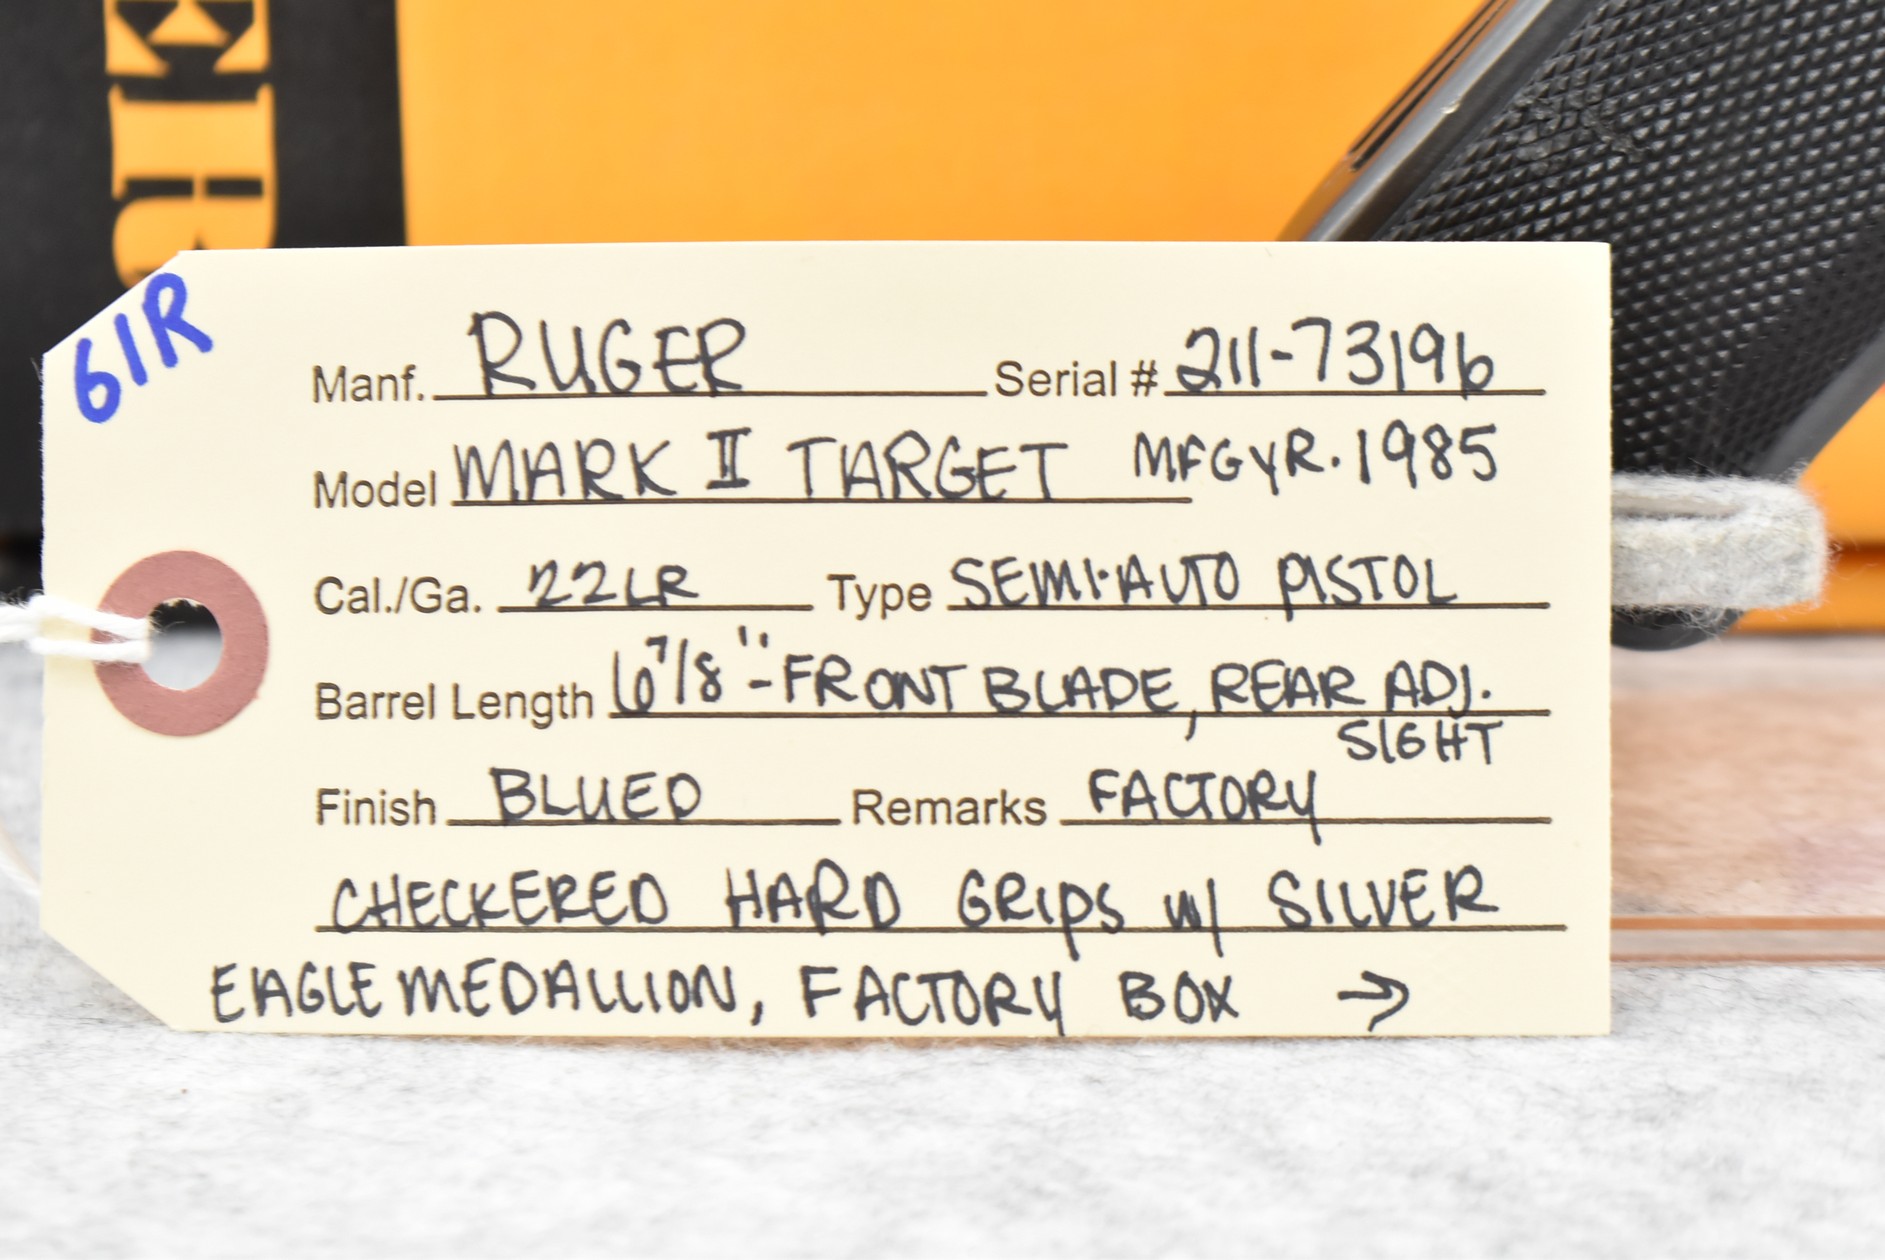 ER
61R
Manf. RUGER Serial # 211-73196
Model MARK II TARGET MFG YR. 1985
Cal./Ga. 22LR Type SEMI-AUTO PISTOL
Barrel Length 6 7/8" - FRONT BLADE, REAR ADJ.
SIGHT
Finish BLUED Remarks FACTORY
CHECKERED HARD GRIPS w/ SILVER
EAGLE MEDALLION, FACTORY BOX →